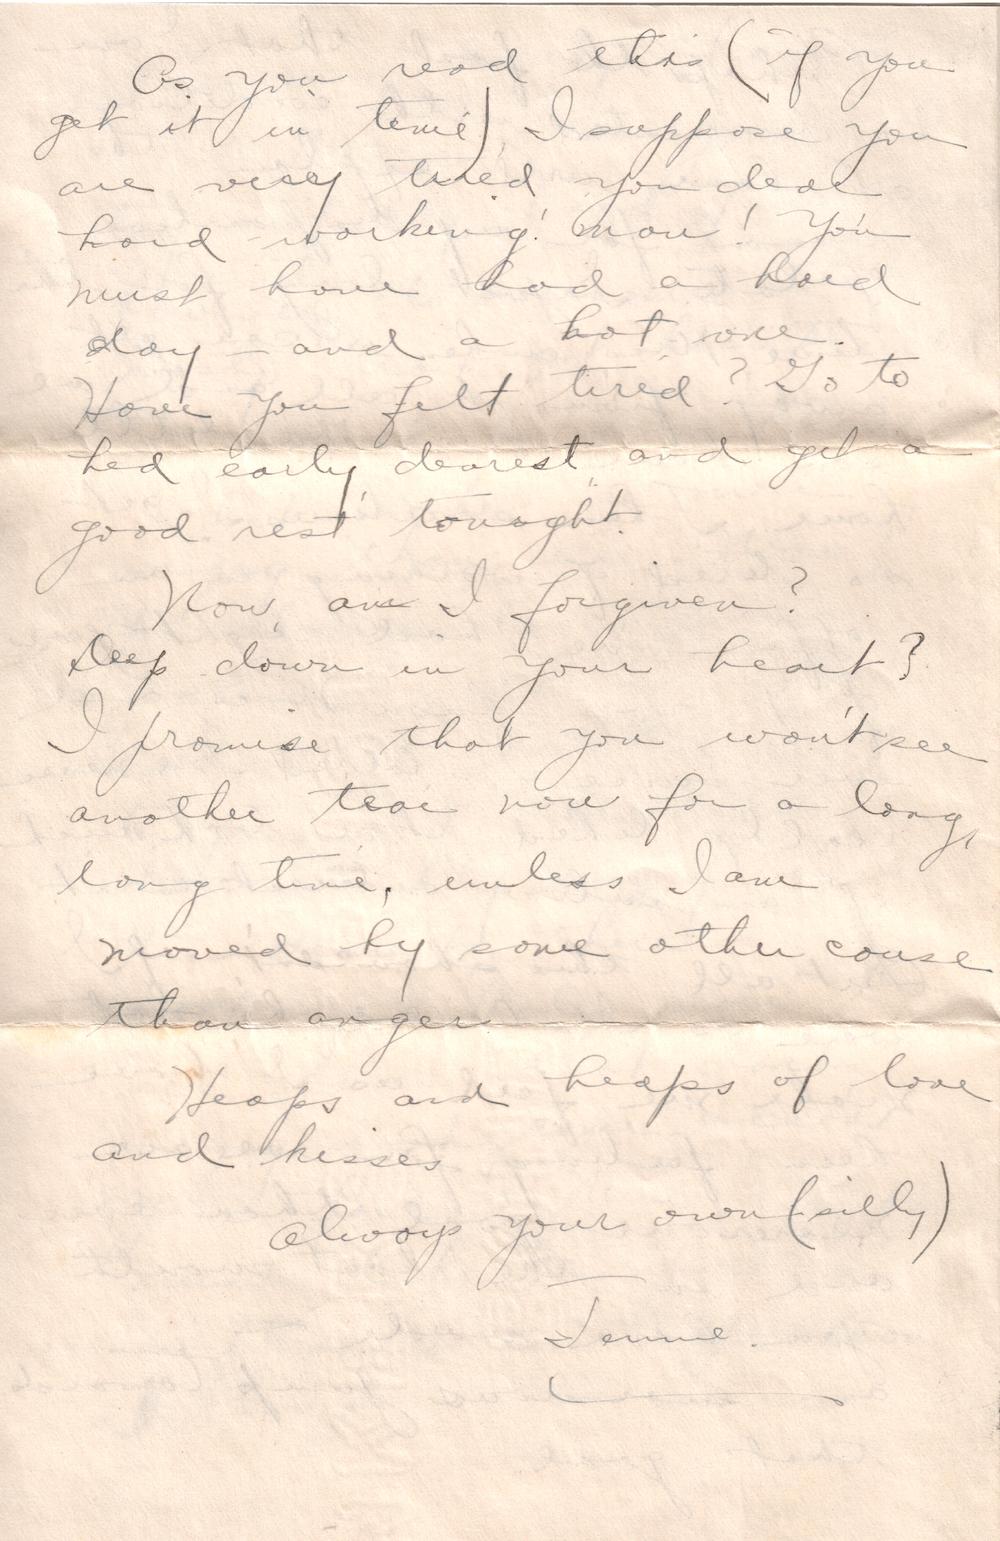 As you read this (if you
get it in time) I suppose you
are very tired you dear
hard working! man! You
must have had a hard
day - and a hot one.
Have you felt tired? Go to
bed early, dearest, and get a
good rest tonight.
Now, am I forgiven?
Deep down in your heart?
I promise that you won't see
another tear now for a long,
long time, unless I am
moved by some other cause
than anger.
Heaps and heaps of love
and kisses
Always your own (silly)
Jennie.